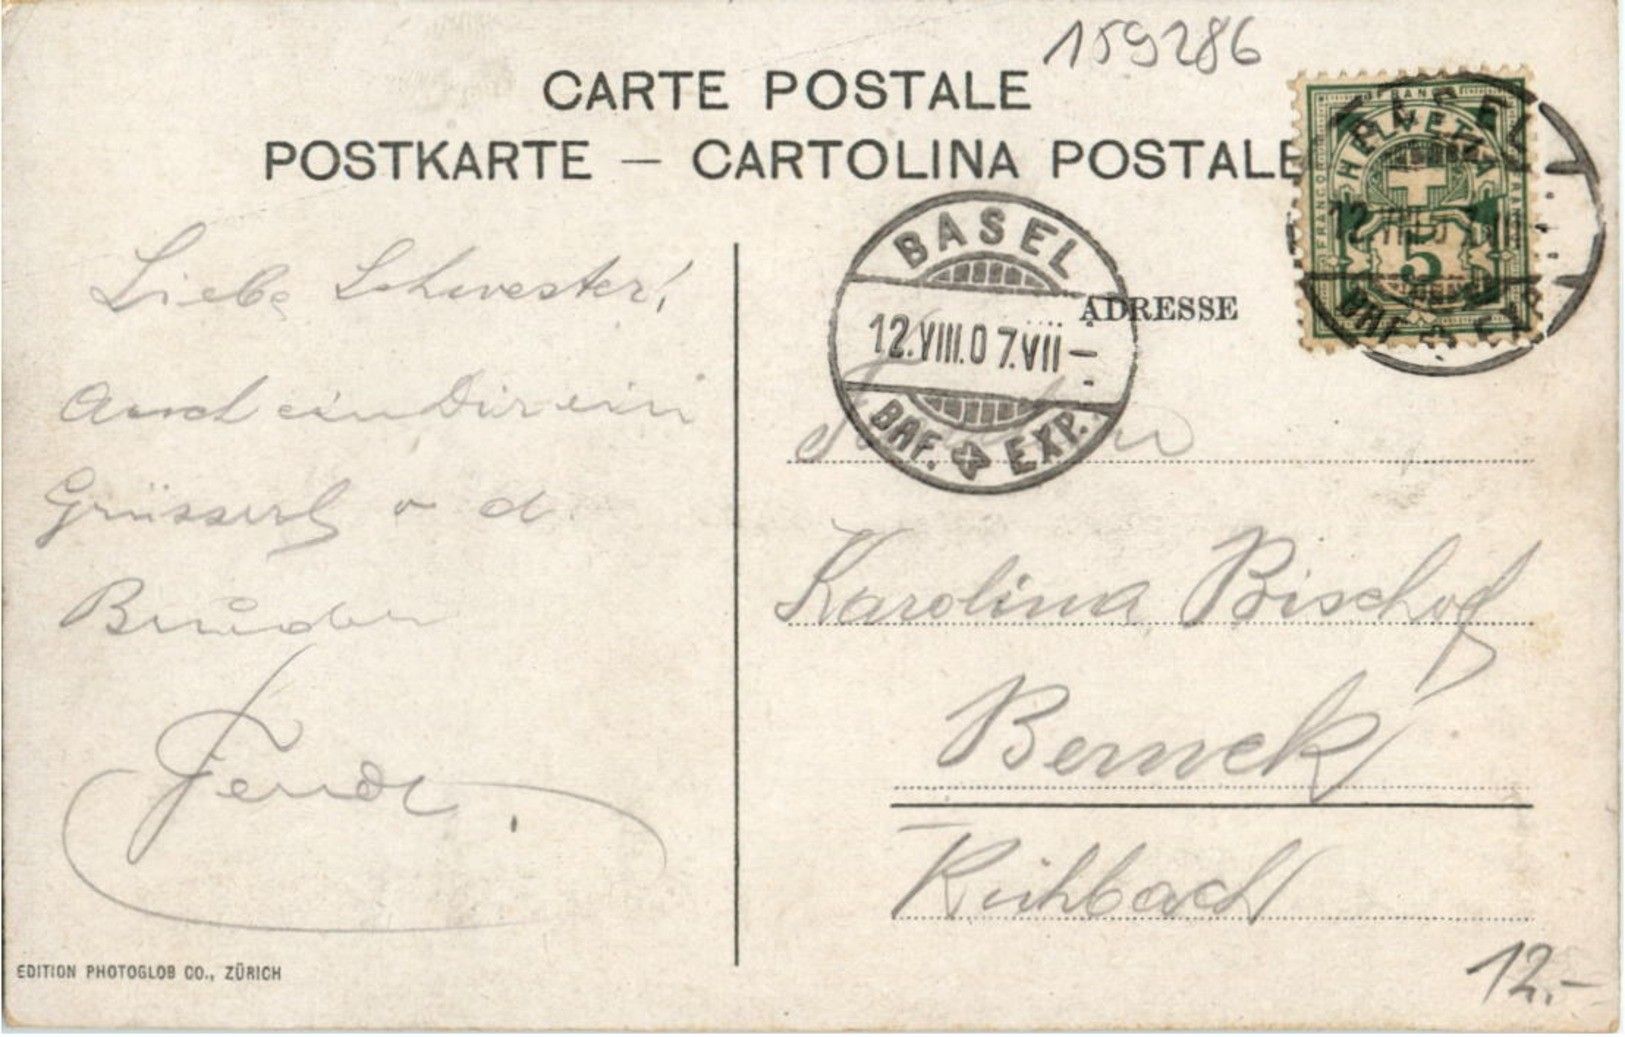 159286
CARTE POSTALE
POSTKARTE — CARTOLINA POSTALE
HELVETIA
FRANCO
5
BASEL
12.VIII.07.VII—
BRF. EXP.
ADRESSE
BASEL
BRF. EXP.
Liebe Schwester!
Auch ein Dir ein
Grüsserl v d
Bruder
Ferdi
Karolina Bischof
Berneck
12.-
EDITION PHOTOGLOB CO., ZÜRICH